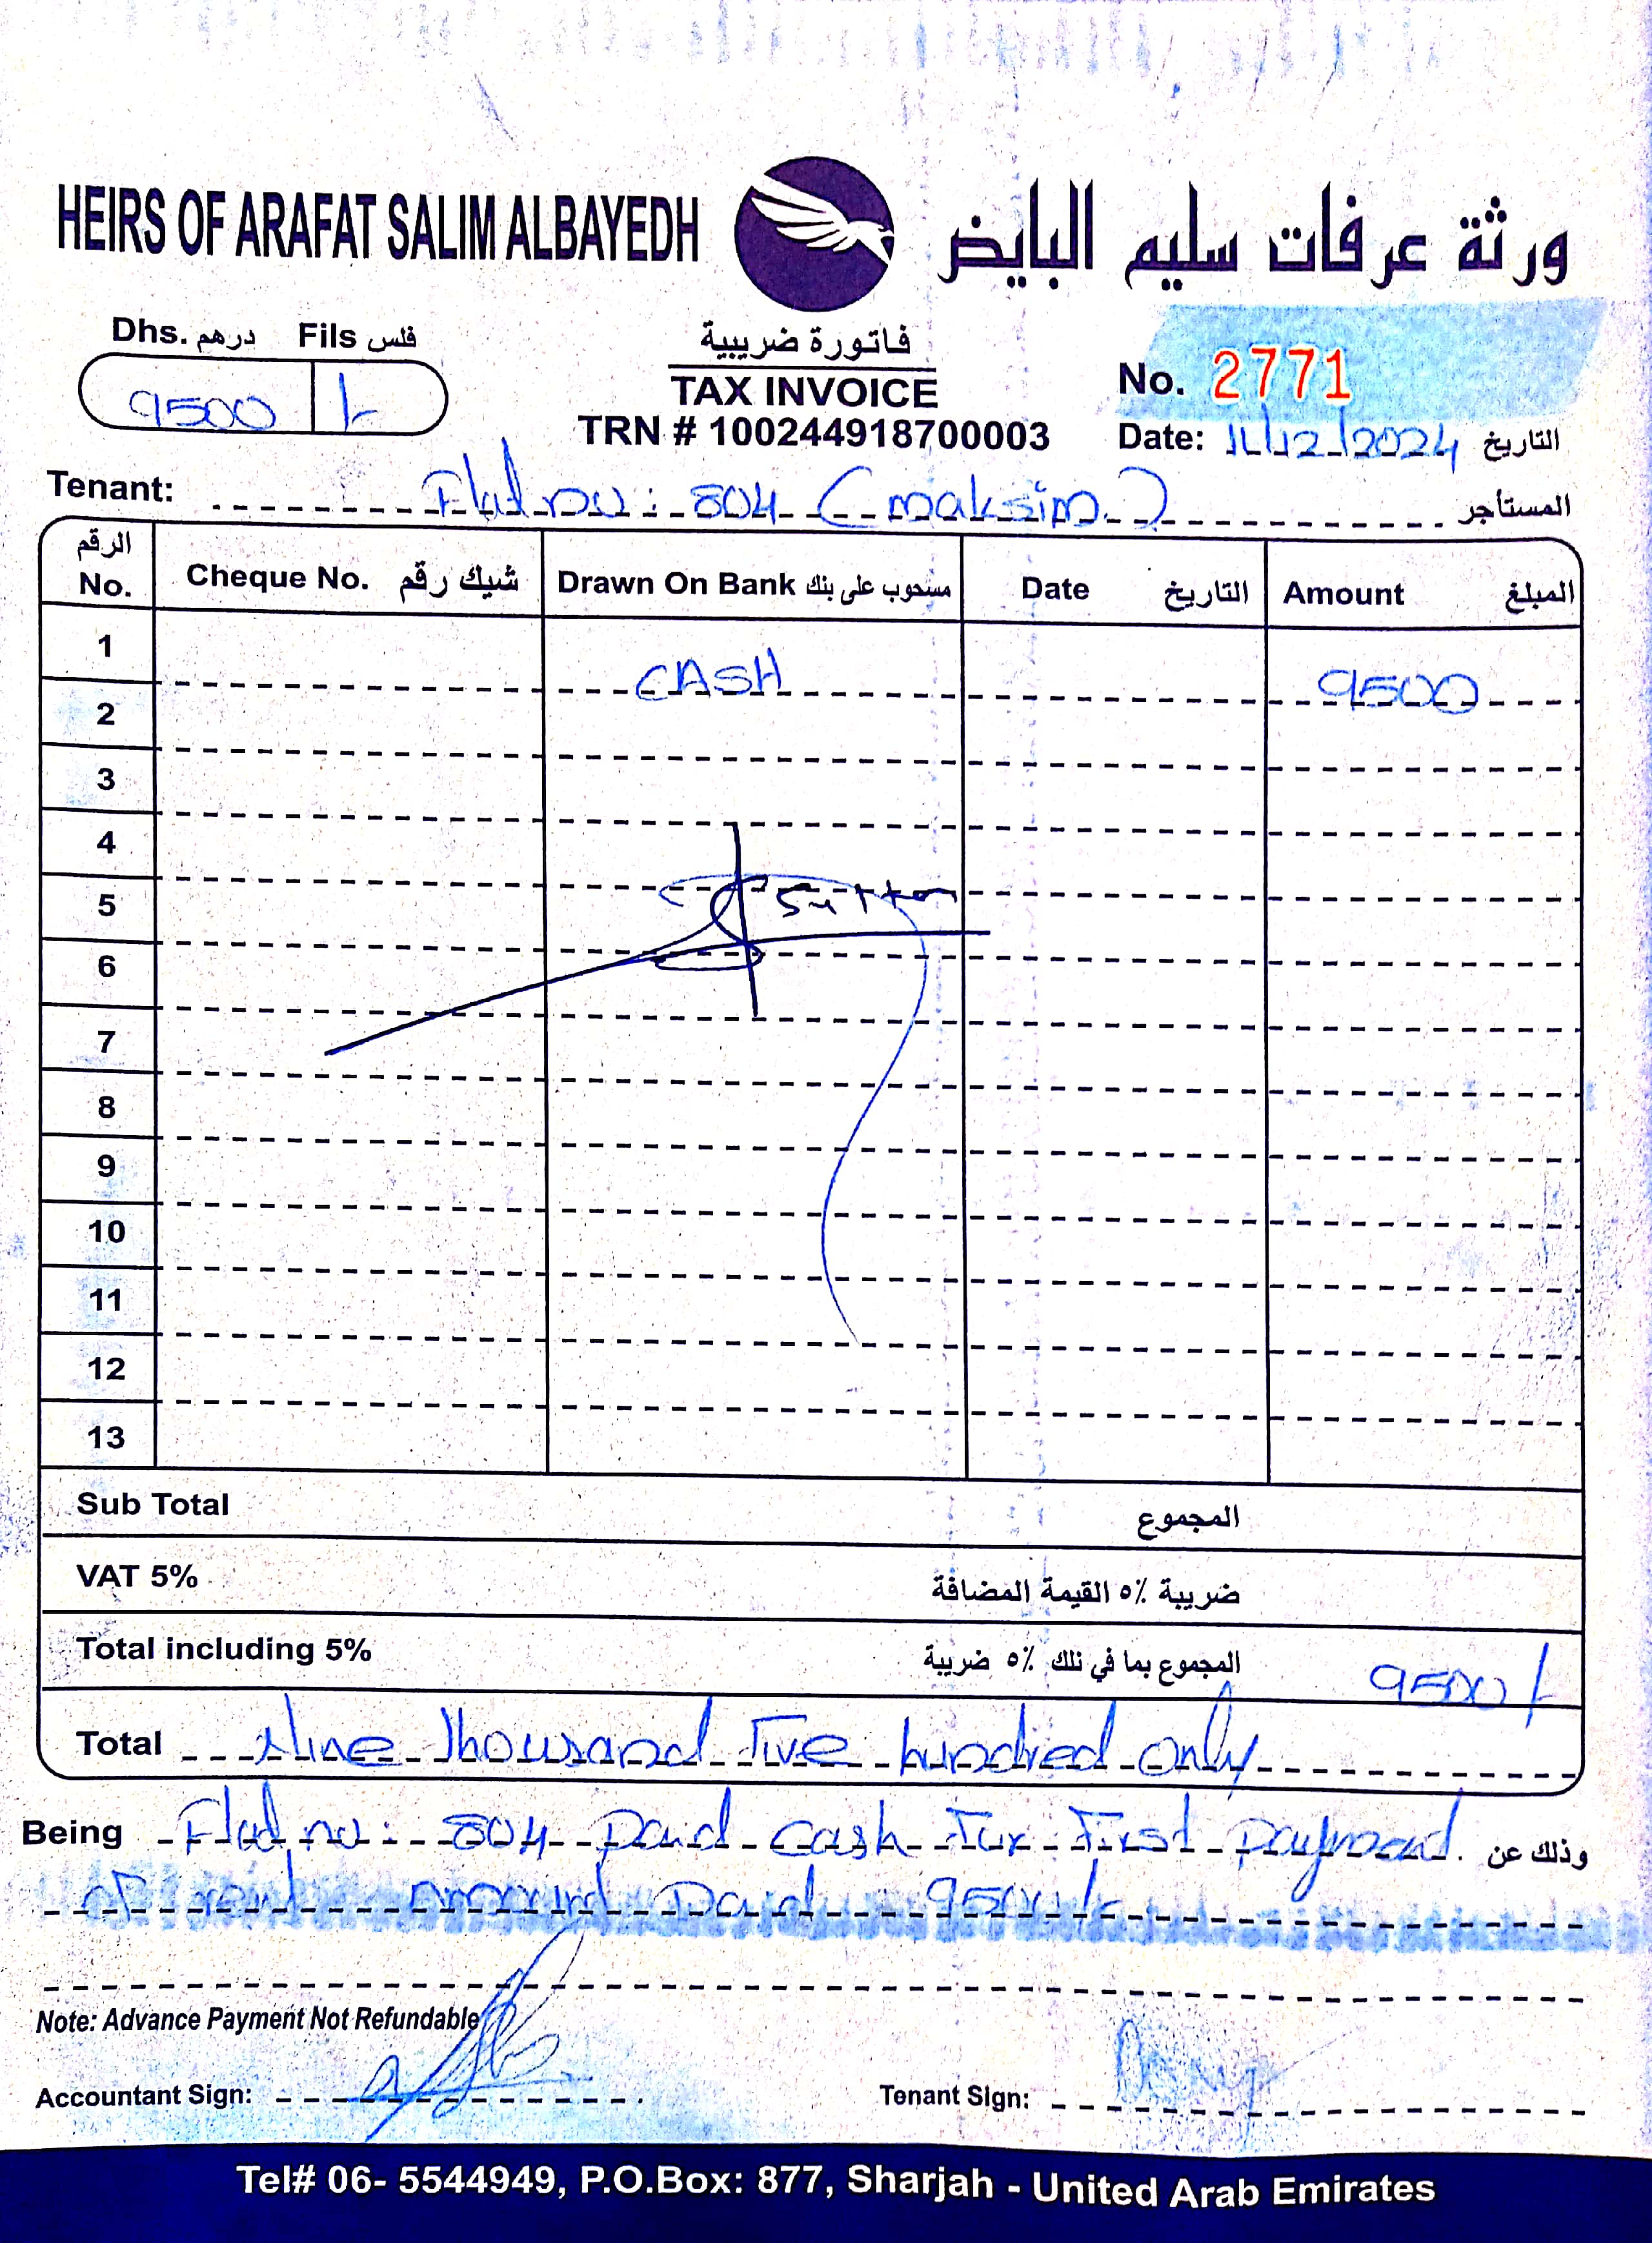 HEIRS OF ARAFAT SALIM ALBAYEDH
ورثة عرفات سليم البايض
Dhs. درهم Fils فلس
9500 /-
فاتورة ضريبية
TAX INVOICE
TRN # 100244918700003
No. 2771
Date: 11/12/2024 التاريخ
Tenant: Flat no: 804 (maksim) المستأجر
الرقم No. Cheque No. شيك رقم Drawn On Bank مسحوب على بنك Date التاريخ Amount المبلغ
1 CASH 9500
2
3
4
5
6
7
8
9
10
11
12
13
Sub Total المجموع
VAT 5% ضريبة ٥٪ القيمة المضافة
Total including 5% المجموع بما في ذلك ٥٪ ضريبة 9500/-
Total Nine Thousand Five hundred only
Being Flat no: 804 Paid cash For First Payment وذلك عن
of rent amount Paid 9500/-
Note: Advance Payment Not Refundable
Accountant Sign:
Tenant Sign:
Tel# 06- 5544949, P.O.Box: 877, Sharjah - United Arab Emirates